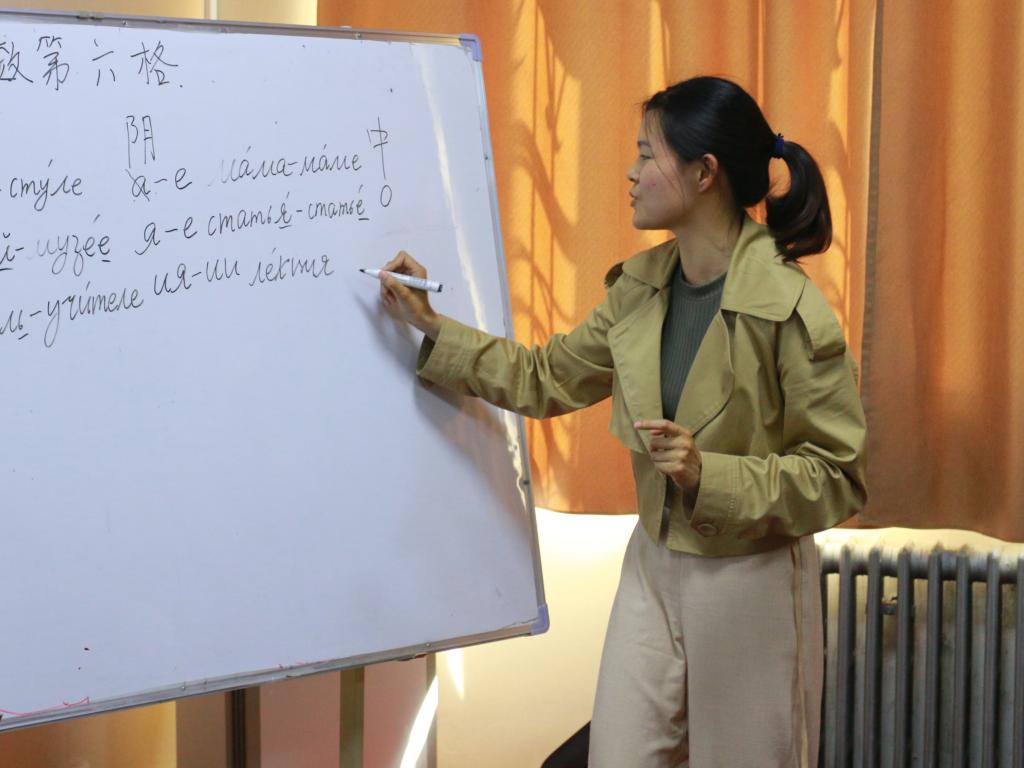 数第六格.
阴 中
-сту́ле а-е ма́ма-ма́ме
й-музе́е я-е статья́-статье́ о
ль-учи́теле ия-ии ле́кция